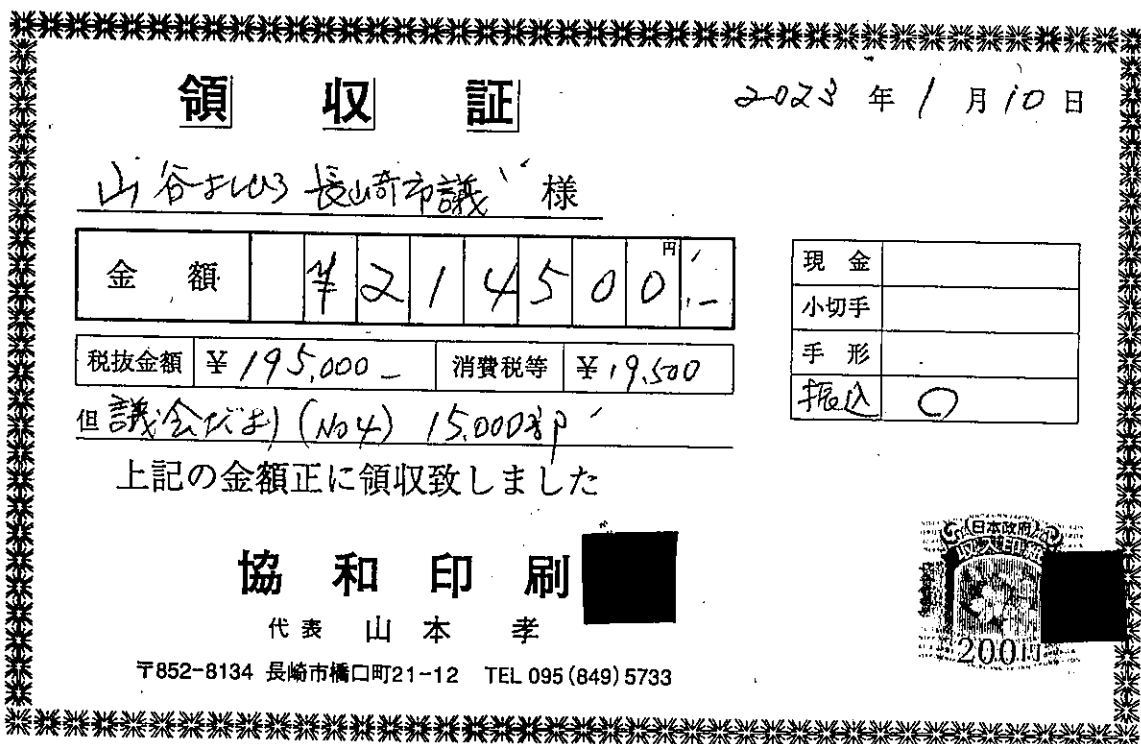 領収証
2023年1月10日
山谷よしひろ 長崎市議 様
金額 ¥214500円-
税抜金額 ¥195,000- 消費税等 ¥19,500
但 議会だより (No4) 15,000部
上記の金額正に領収致しました
現金
小切手
手形
振込 ○
協和印刷
代表 山本 孝
〒852-8134 長崎市橋口町21-12 TEL 095(849)5733
日本政府
収入印紙
200円